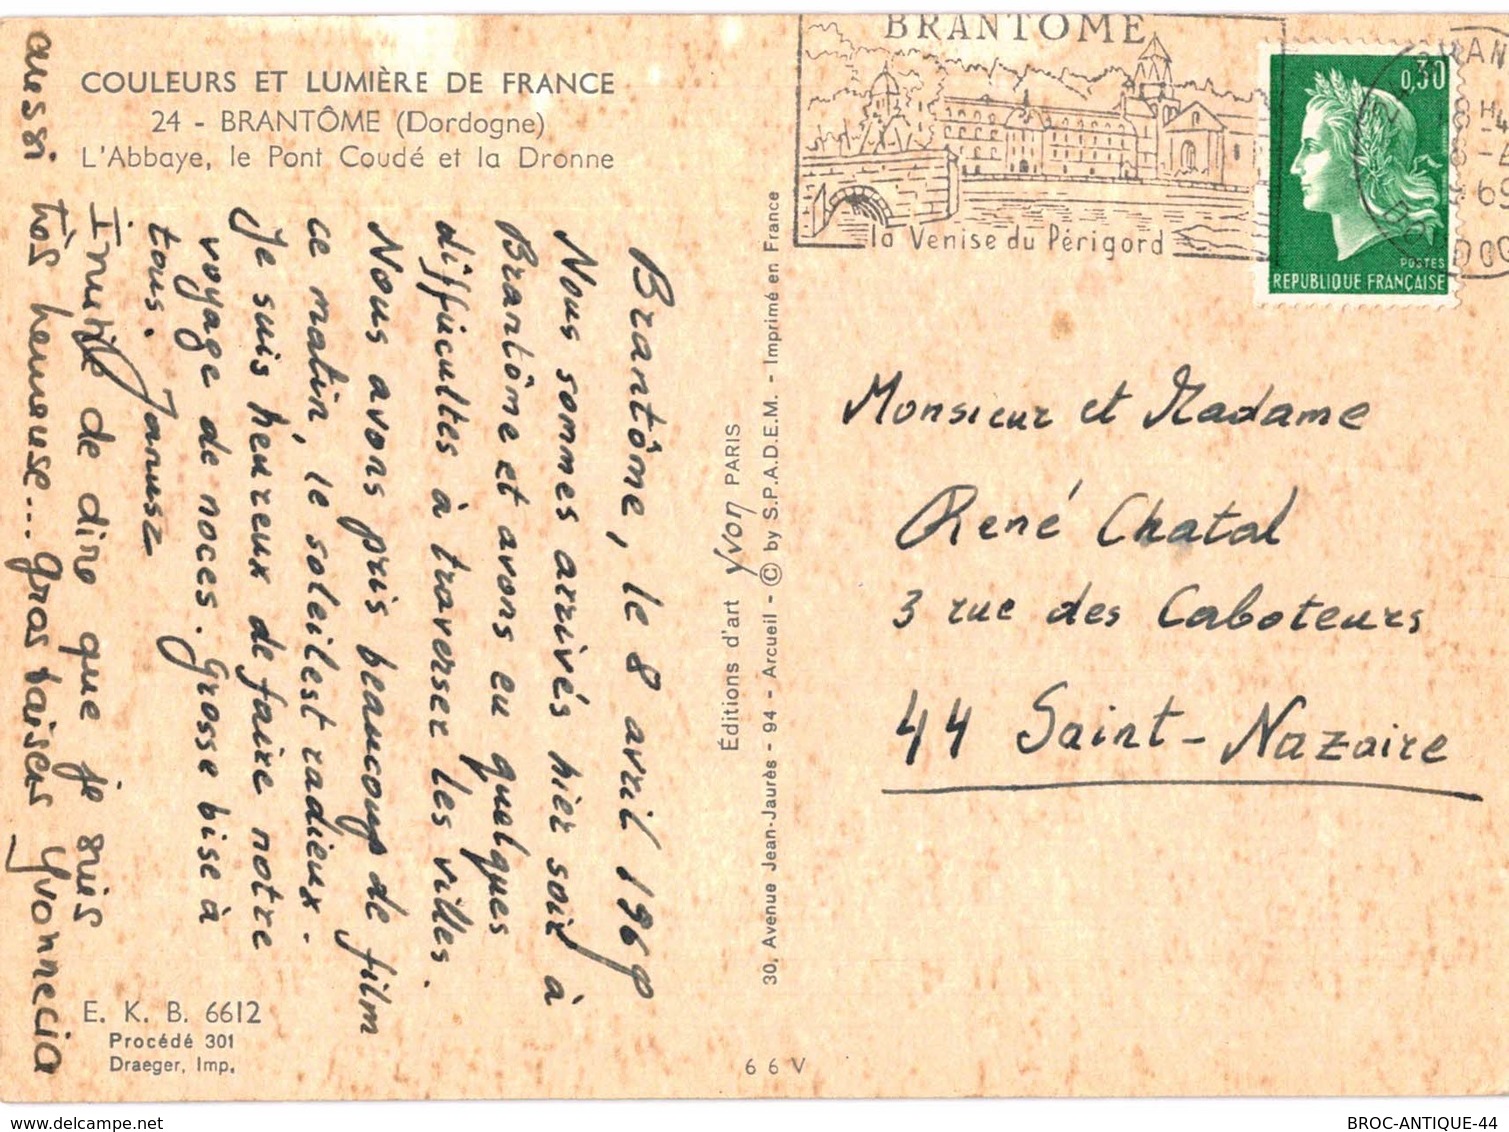 COULEURS ET LUMIÈRE DE FRANCE
24 - BRANTÔME (Dordogne)
L'Abbaye, le Pont Coudé et la Dronne
Brantôme, le 8 avril 1969
Nous sommes arrivés hier soir à
Brantôme et avons eu quelques
difficultés à traverser les villes.
Nous avons pris beaucoup de film
ce matin, le soleil est radieux.
Je suis heureux de faire notre
voyage de noces. Grosse bise à
tous. Janusz
Inutile de dire que je suis
aussi très heureuse... gros baisers Yvonnecia
E. K. B. 6612
Procédé 301
Draeger, Imp.
Éditions d'art Yvon PARIS
30, Avenue Jean-Jaurès - 94 - Arcueil - © by S.P.A.D.E.M. - Imprimé en France
6 6 V
BRANTOME
la Venise du Périgord
0,30
POSTES
REPUBLIQUE FRANÇAISE
Monsieur et Madame
René Chatal
3 rue des Caboteurs
44 Saint-Nazaire
delcampe.net
BROC-ANTIQUE-44